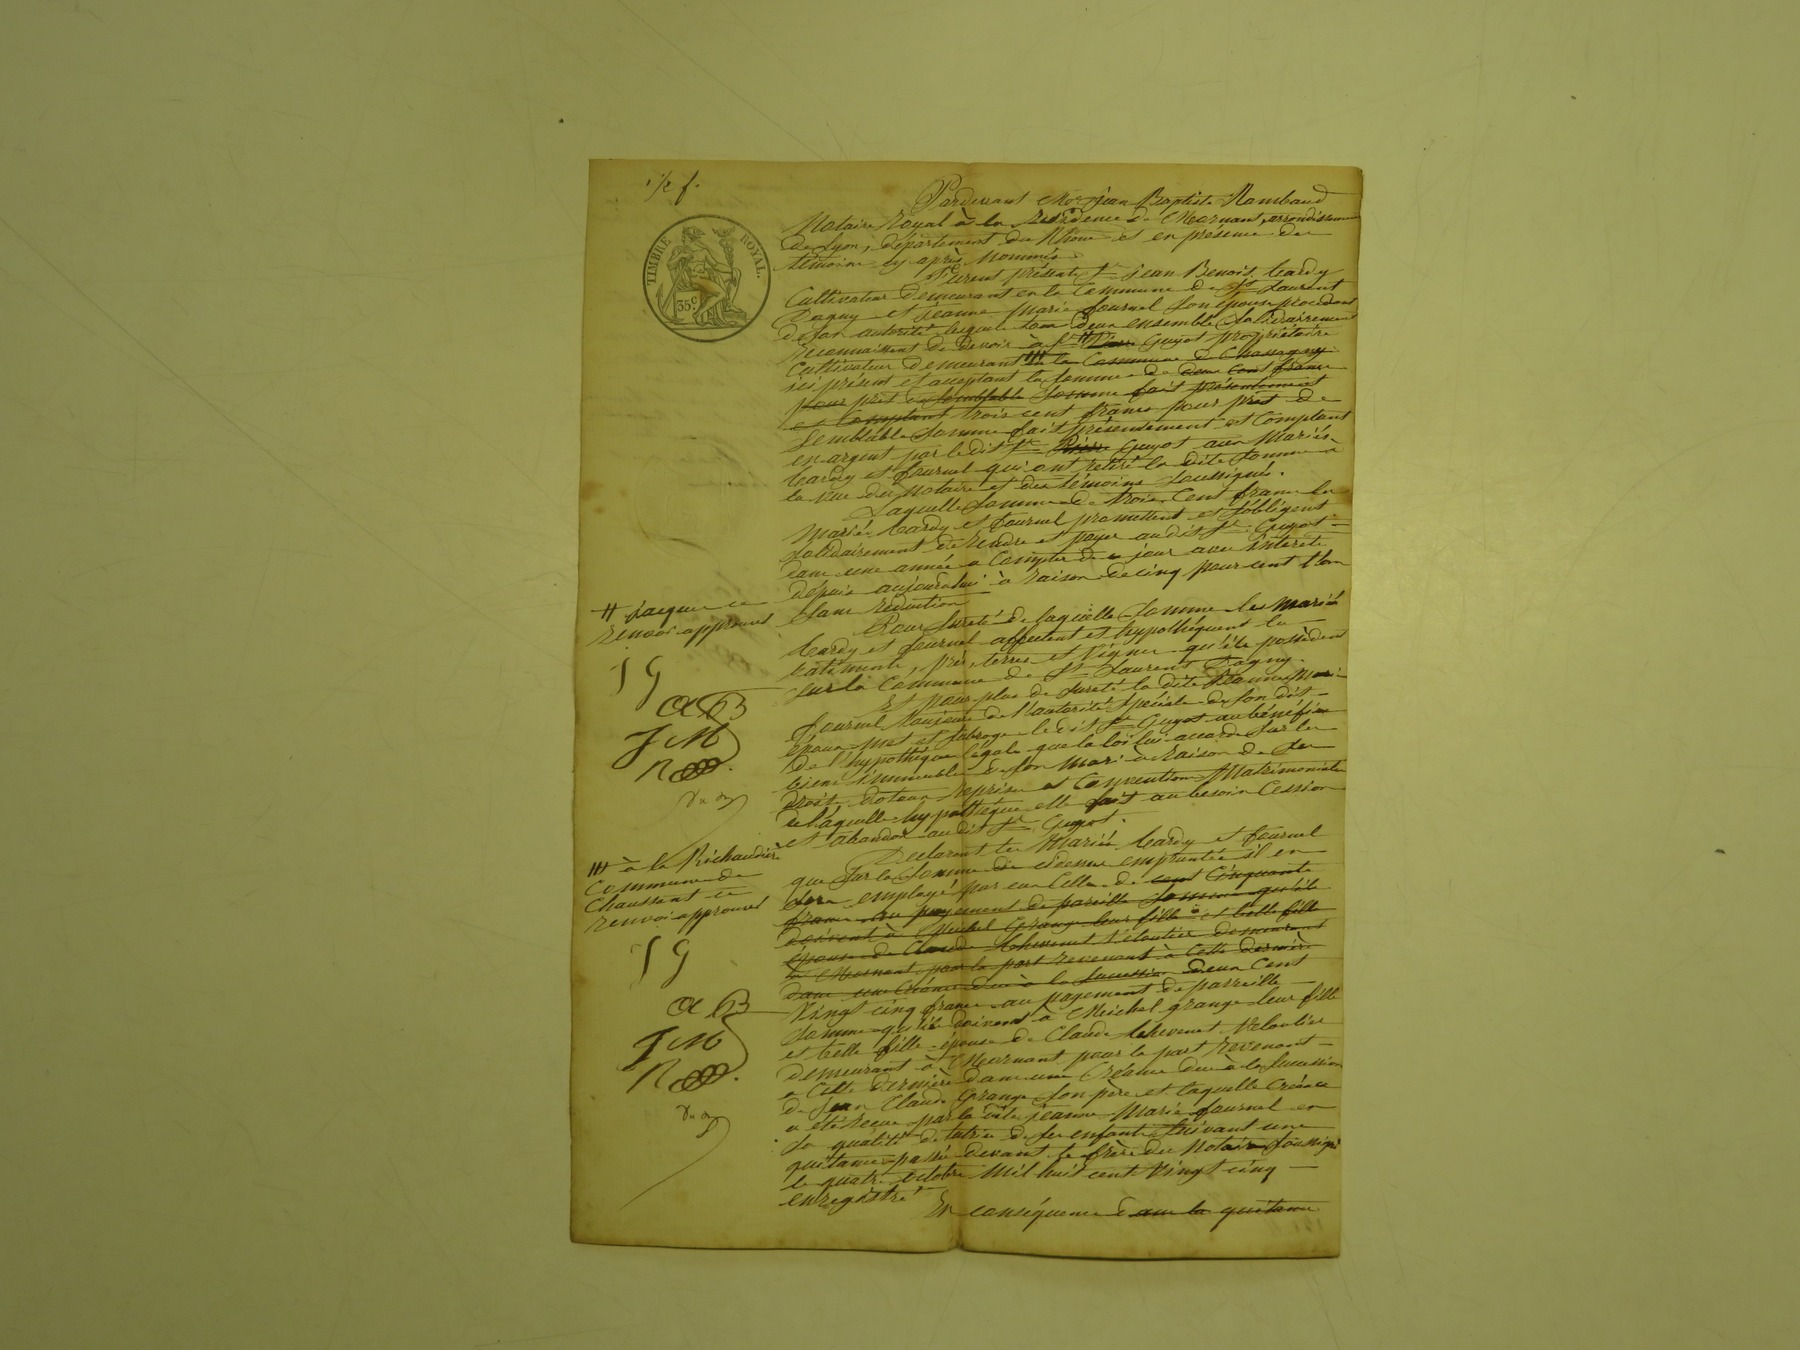 1/2 f.
TIMBRE ROYAL.
35 c
Pardevant Me jean Baptiste Rambaud
Notaire Royal à la résidence de Mornant, arrondissement
de Lyon, département du Rhône et en présence des
témoins cy après Nommés
Furent présents Sr jean Benoit Cardy
Cultivateur demeurant en la Commune de St Laurent
Dagny et jeanne Marie fournel son épouse procédant
de son autorité lesquels tous deux ensemble solidairement
reconnaissent de devoir à Sr # Guyot propriétaire
Cultivateur demeurant #// en la Commune de Chassagny
ici présent et acceptant la somme de deux Cent francs
pour prêt de semblable somme fait présentement
et Comptant trois cent francs pour prêt de
semblable somme fait présentement et Comptant
en argent par le dit Sr Pierre Guyot aux Mariés
Cardy et fournel qui ont retiré la dite somme a
la vue du Notaire et des témoins soussignés.
Laquelle somme de trois Cent francs les
Mariés Cardy et fournel promettent et s'obligent
solidairement de rendre et payer au dit Sr Guyot
dans une année a Compter de ce jour avec intérêts
depuis aujourd'hui à raison de cinq pour cent l'an
sans réduction
Pour sureté de laquelle somme les mariés
Cardy et fournel affectent et hypothéquent les
bâtiments, prés, terres et vignes qu'ils possèdent
sur la commune de St Laurent Dagny.
Et pour plus de sureté la dite jeanne Marie
fournel toujours de l'autorité spéciale de son dit
époux met et subroge le dit Sr Guyot au bénéfice
de l'hypothèque légale que la loi lui accorde sur les
biens immeubles de son mari à raison de ses
droits dotaux reprises et Convention Matrimoniale
de laquelle hypothèque elle fait au besoin Cession
et abandon au dit Sr Guyot.
Déclarent les Mariés Cardy et fournel
que sur la somme de cidessus empruntée il en
sera employé par eux Celle de cent Cinquante
francs au payement de pareille somme qu'ils
doivent à Michel Grange leur fille et belle fille
épouse de Claude Chevenet Veloutier demeurant
à Mornant pour la part revenant à Cette dernière
dans une Créance due à la succession deux Cent
Vingt cinq francs au payement de pareille
somme qu'ils doivent à Michel grange leur fille
et belle fille épouse de Claude Chevenet Veloutier
demeurant à Mornant pour la part revenant
a Cette dernière dans une Créance due à la succession
de jean Claude Grange son père et laquelle créance
a été reçue par la dite jeanne Marie fournel en
sa qualité de tutrice de ses enfants suivant une
quitance passée devant le frère du Notaire soussigné
le quatre octobre Mil huit cent Vingt cinq
enregistré
En conséquence dans la quitance
# jacques ce
renvoi approuvé
J G
a B
J M
R
#// à la Richaudière
Commune de
Chaussant ce
renvoi approuvé
J G
a B
J M
R